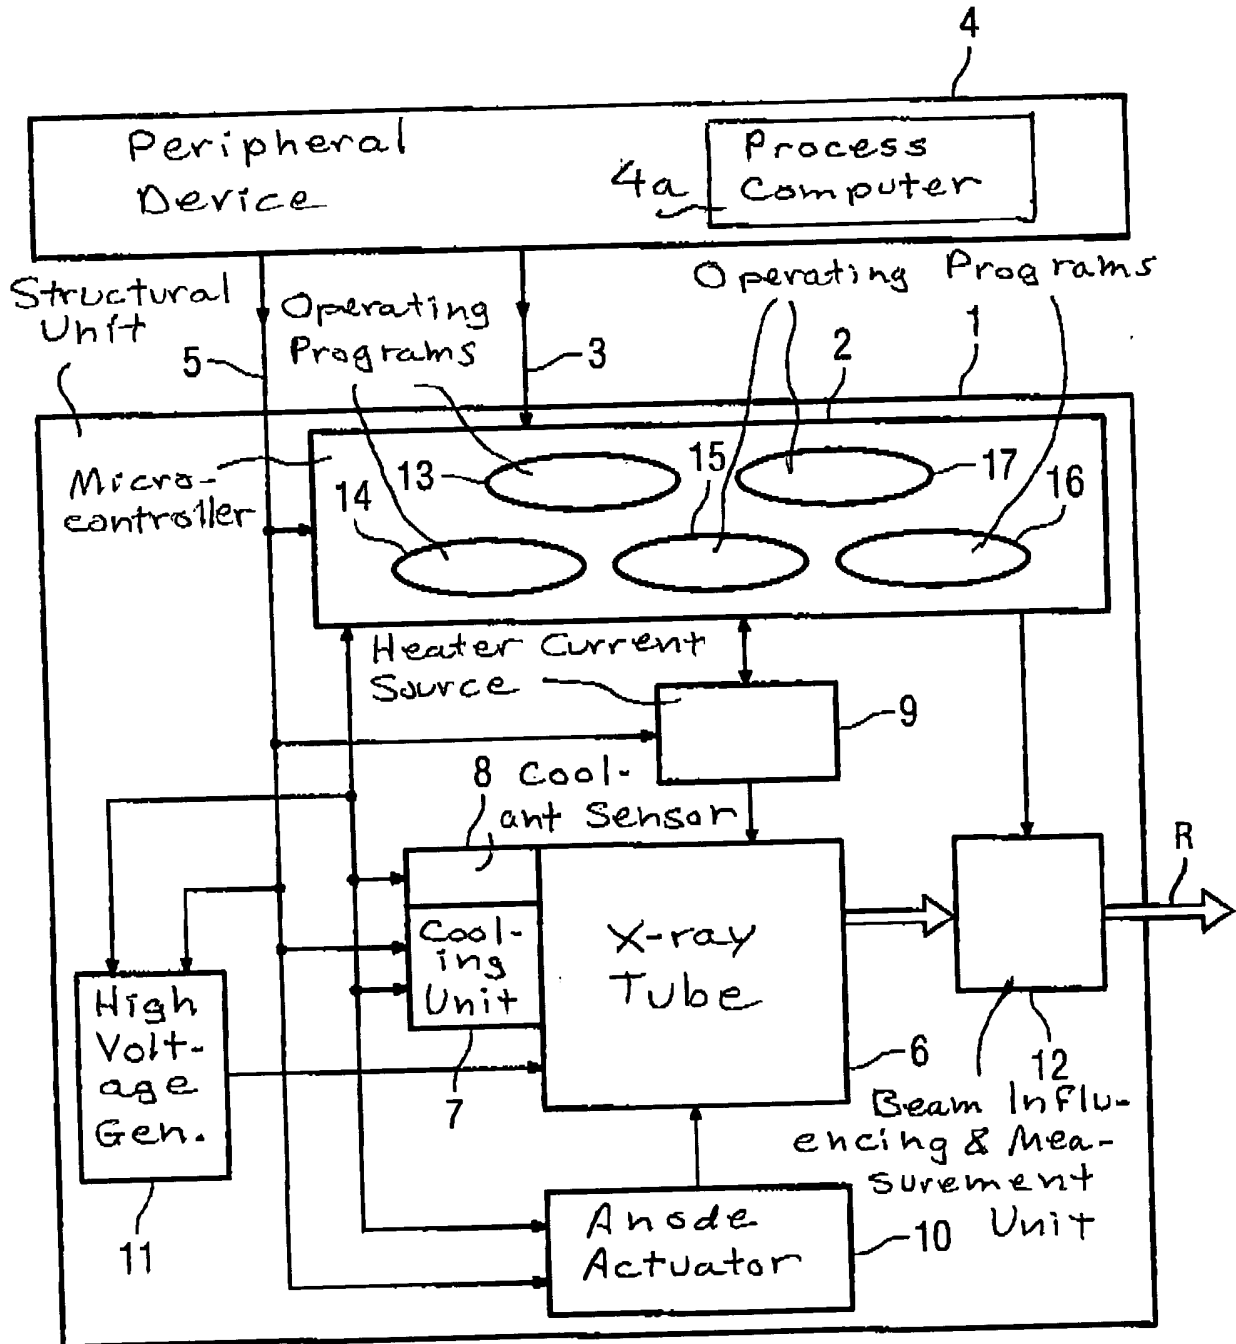 4
Peripheral
Device
4a
Process
Computer
Structural
Unit
Operating
Programs
Operating Programs
5
3
2
1
Micro-
controller
13
14
15
17
16
Heater Current
Source
9
8 Cool-
ant Sensor
R
Cool-
ing
Unit
X-ray
Tube
High
Volt-
age
Gen.
7
6
12
Beam Influ-
encing & Mea-
surement
Unit
11
Anode
Actuator
10